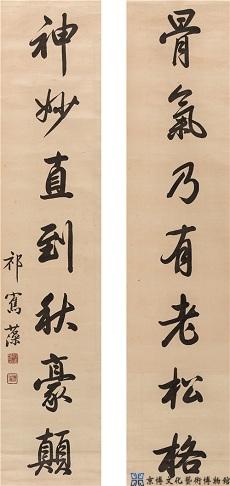 骨氣乃有老松格
神妙直到秋豪顛
祁寯藻
京博文化藝術博物館